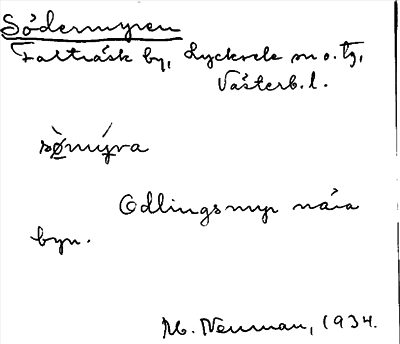 Södermyren
Fatträsk by, Lycksele sn o. tg,
Västerb. l.
sø̀mý̱ra
Odlingsmyr nära
byn.
M. Neuman, 1934.